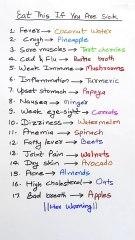 Eat This If You Are Sick
1 Fever → Coconut Water
2 Cough → Pineapple
3 Sore muscles → Tart cherries
4 Cold & Flu → Bone broth
5 Weak Immune → Mushrooms
6 Inflammation → Turmeric
7 Upset stomach → Papaya
8 Nausea → Ginger
9 Weak eye-sight → Carrots
10 Dizziness → Watermelon
11 Anemia → Spinach
12 Fatty liver → Beets
13 Joint Pain → Walnuts
14 Dry skin → Avocado
15 Acne → Almonds
16 High cholesterol → Oats
17 Bad breath → Apples